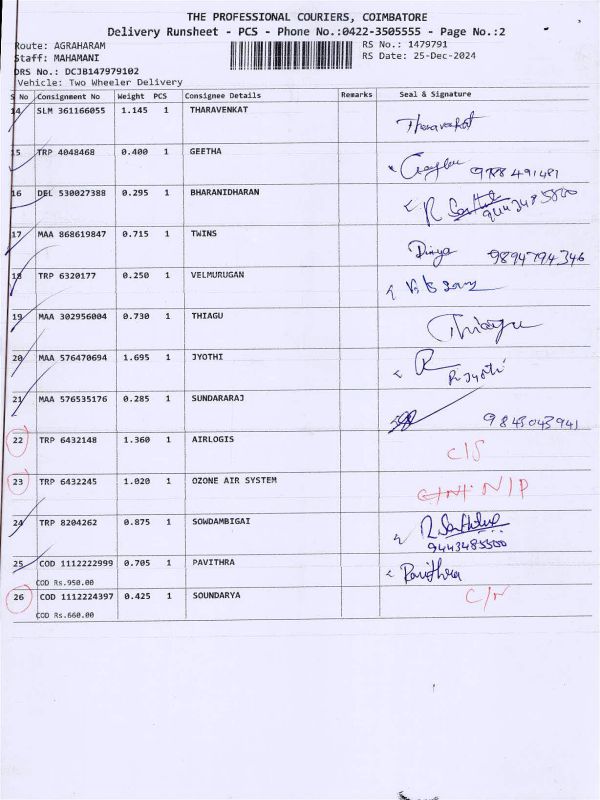 THE PROFESSIONAL COURIERS, COIMBATORE
Delivery Runsheet - PCS - Phone No.:0422-3505555 - Page No.:2
Route: AGRAHARAM RS No.: 1479791
Staff: MAHAMANI RS Date: 25-Dec-2024
DRS No.: DCJB147979102
Vehicle: Two Wheeler Delivery
S No Consignment No Weight PCS Consignee Details Remarks Seal & Signature
14 SLM 361166055 1.145 1 THARAVENKAT Tharavenkat
15 TRP 4048468 0.400 1 GEETHA
16 DEL 530027388 0.295 1 BHARANIDHARAN R 9443485500
17 MAA 868619847 0.715 1 TWINS Divya 9894794346
18 TRP 6320177 0.250 1 VELMURUGAN
19 MAA 302956004 0.730 1 THIAGU Thiagu
20 MAA 576470694 1.695 1 JYOTHI R
R Jyothi
21 MAA 576535176 0.285 1 SUNDARARAJ 9843043941
22 TRP 6432148 1.360 1 AIRLOGIS C/S
23 TRP 6432245 1.020 1 OZONE AIR SYSTEM N/P
24 TRP 8204262 0.875 1 SOWDAMBIGAI R
9443485500
25 COD 1112222999 0.705 1 PAVITHRA Pavithra
COD Rs.950.00
26 COD 1112224397 0.425 1 SOUNDARYA C/N
COD Rs.660.00